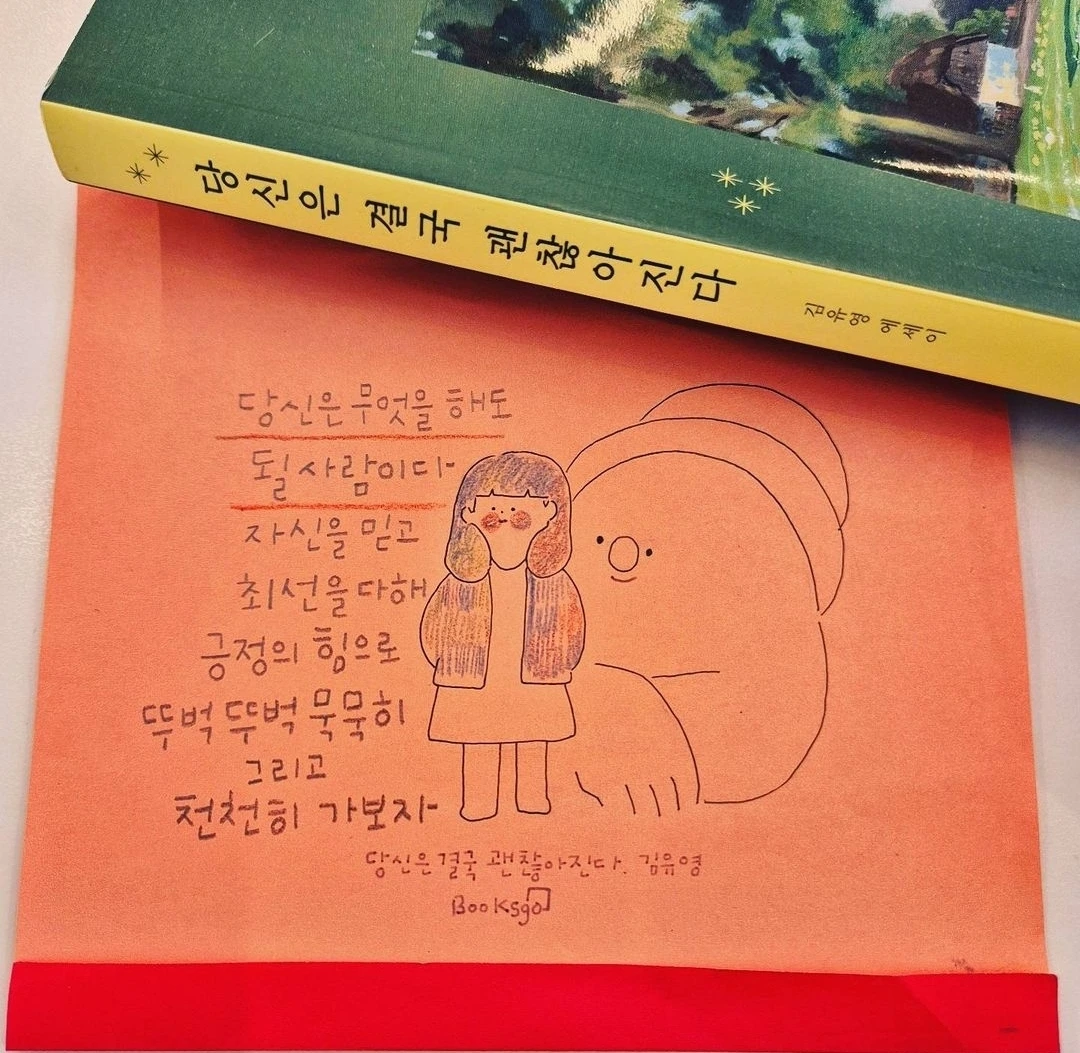 당신은 결국 괜찮아진다
김유영 에세이
당신은 무엇을 해도
될 사람이다
자신을 믿고
최선을 다해
긍정의 힘으로
뚜벅 뚜벅 묵묵히
그리고
천천히 가보자
당신은 결국 괜찮아진다. 김유영
Booksgo